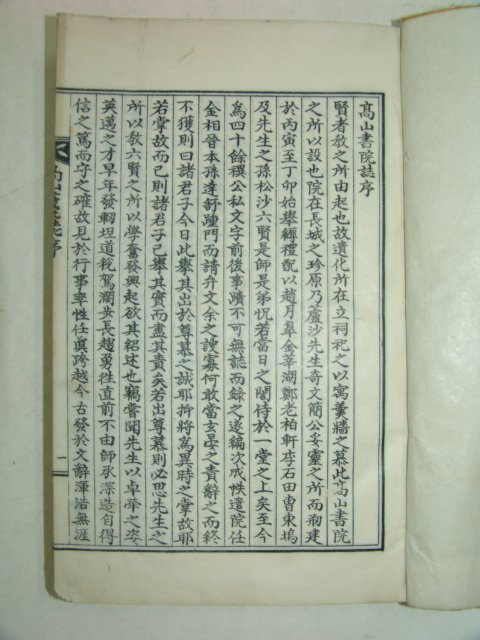 高山書院誌序
賢者教之所由起也故遺化所在立祠祀之以寓羹牆之慕此高山書院
之所以設也院在長城之珍原乃蘆沙先生奇文簡公妥靈之所而刱建
於丙寅至丁卯始擧縟禮配以趙月皐金莘湖鄭老柏軒李石田曺東塢
及先生之孫松沙六賢是師是弟怳若當日之誾侍於一堂之上矣至今
爲四十餘禩公私文字前後事蹟不可無誌而錄之遂編次成帙遣院任
金相晉本孫達舒踵門而請弁文余之謭寡何敢當玄晏之責辭之而終
不獲則曰諸君子今日此擧其出於尊慕之誠耶抑將爲異時之掌故耶
若掌故而已則諸君子已擧其實而盡其責矣若出尊慕則必思先生之
所以敎六賢之所以學奮發興起欲其紹述也竊嘗聞先生以卓犖之姿
英邁之才早年發軔坦道稅駕濶步長趨勇往直前不由師承深造自得
信之篤而守之確故見於行事率性任眞跨越今古發於文辭渾浩無涯
高山書院誌序
一